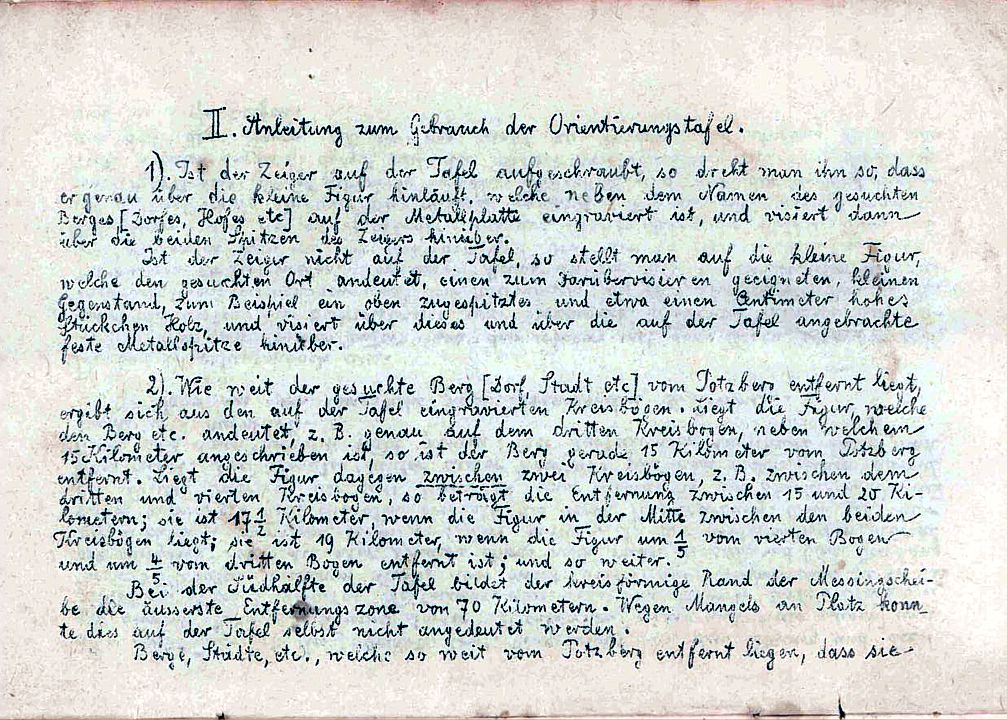 II. Anleitung zum Gebrauch der Orientierungstafel.
1). Ist der Zeiger auf der Tafel aufgeschraubt, so dreht man ihn so, dass
er genau über die kleine Figur hinläuft, welche neben dem Namen des gesuchten
Berges [Dorfes, Hofes etc] auf der Metallplatte eingraviert ist, und visiert dann
über die beiden Spitzen des Zeigers hinüber.
Ist der Zeiger nicht auf der Tafel, so stellt man auf die kleine Figur,
welche den gesuchten Ort andeutet, einen zum Darübervisieren geeigneten, kleinen
Gegenstand, zum Beispiel ein oben zugespitztes und etwa einen Centimeter hohes
Stückchen Holz, und visiert über dieses und über die auf der Tafel angebrachte
feste Metallspitze hinüber.
2). Wie weit der gesuchte Berg [Dorf, Stadt etc] vom Potzberg entfernt liegt,
ergibt sich aus den auf der Tafel eingravierten Kreisbögen. Liegt die Figur, welche
den Berg etc. andeutet, z. B. genau auf dem dritten Kreisbogen, neben welchem
15 Kilometer angeschrieben ist, so ist der Berg gerade 15 Kilometer vom Potzberg
entfernt. Liegt die Figur dagegen zwischen zwei Kreisbögen, z. B. zwischen dem
dritten und vierten Kreisbogen, so beträgt die Entfernung zwischen 15 und 20 Ki-
lometern; sie ist 17 1/2 Kilometer, wenn die Figur in der Mitte zwischen den beiden
Kreisbögen liegt; sie ist 19 Kilometer, wenn die Figur um 1/5 vom vierten Bogen
und um 4/5 vom dritten Bogen entfernt ist; und so weiter.
Bei der Südhälfte der Tafel bildet der kreisförmige Rand der Messingschei-
be die äusserste Entfernungszone von 70 Kilometern. Wegen Mangels an Platz konn-
te dies auf der Tafel selbst nicht angedeutet werden.
Berge, Städte, etc., welche so weit vom Potzberg entfernt liegen, dass sie